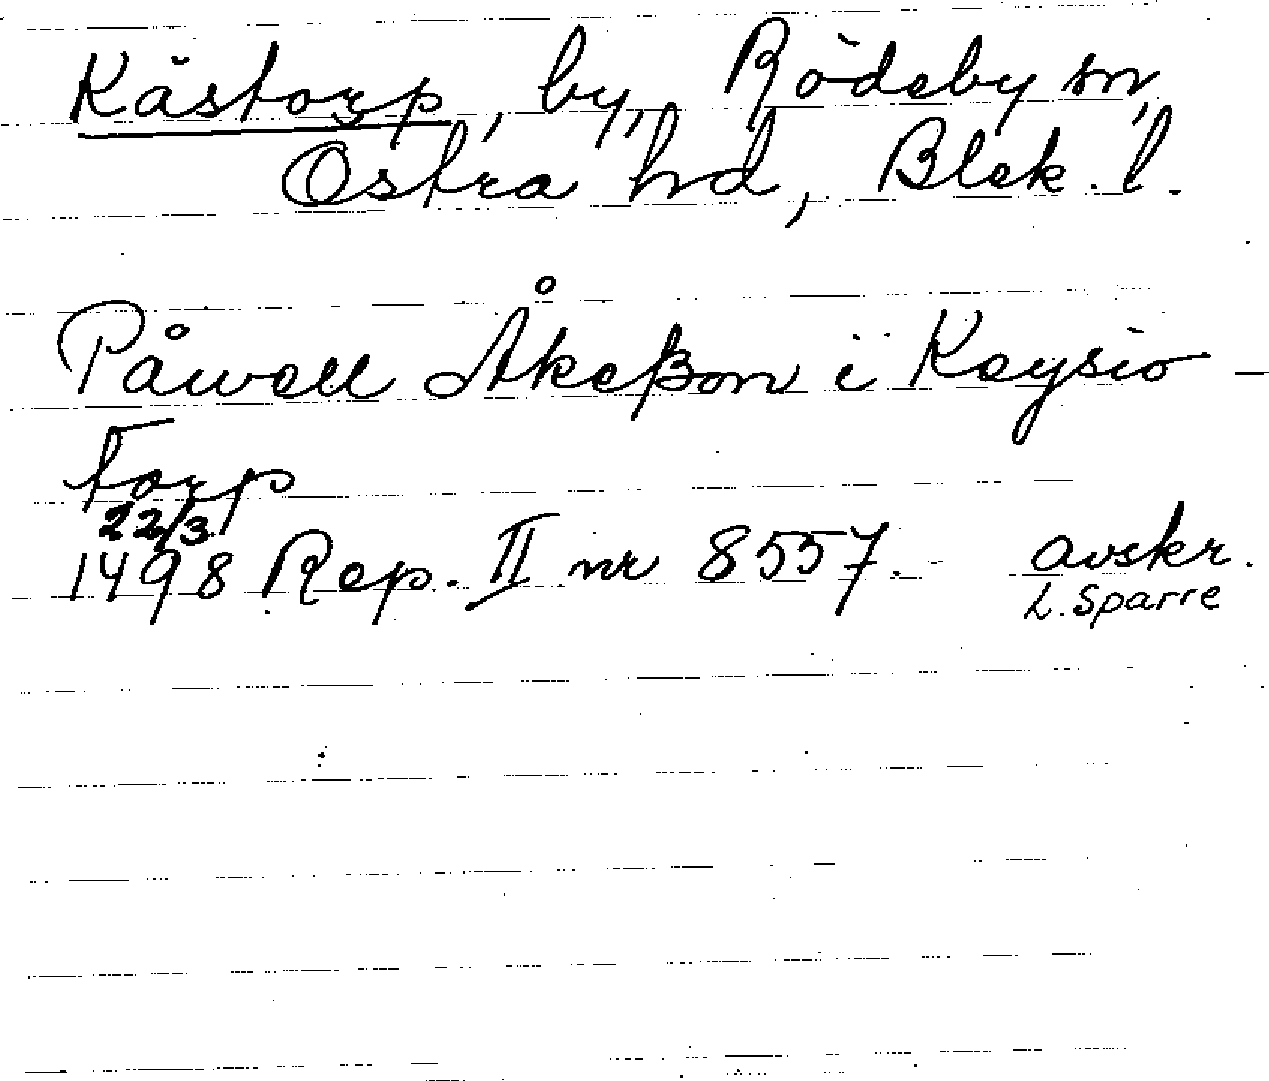 Kåstorp, by, Rödeby sn,
Östra hd, Blek. l.
Påwell Åkeßon i Keysio-
torp
22/3
1498 Rep. II nr 8557. - avskr.
L. Sparre